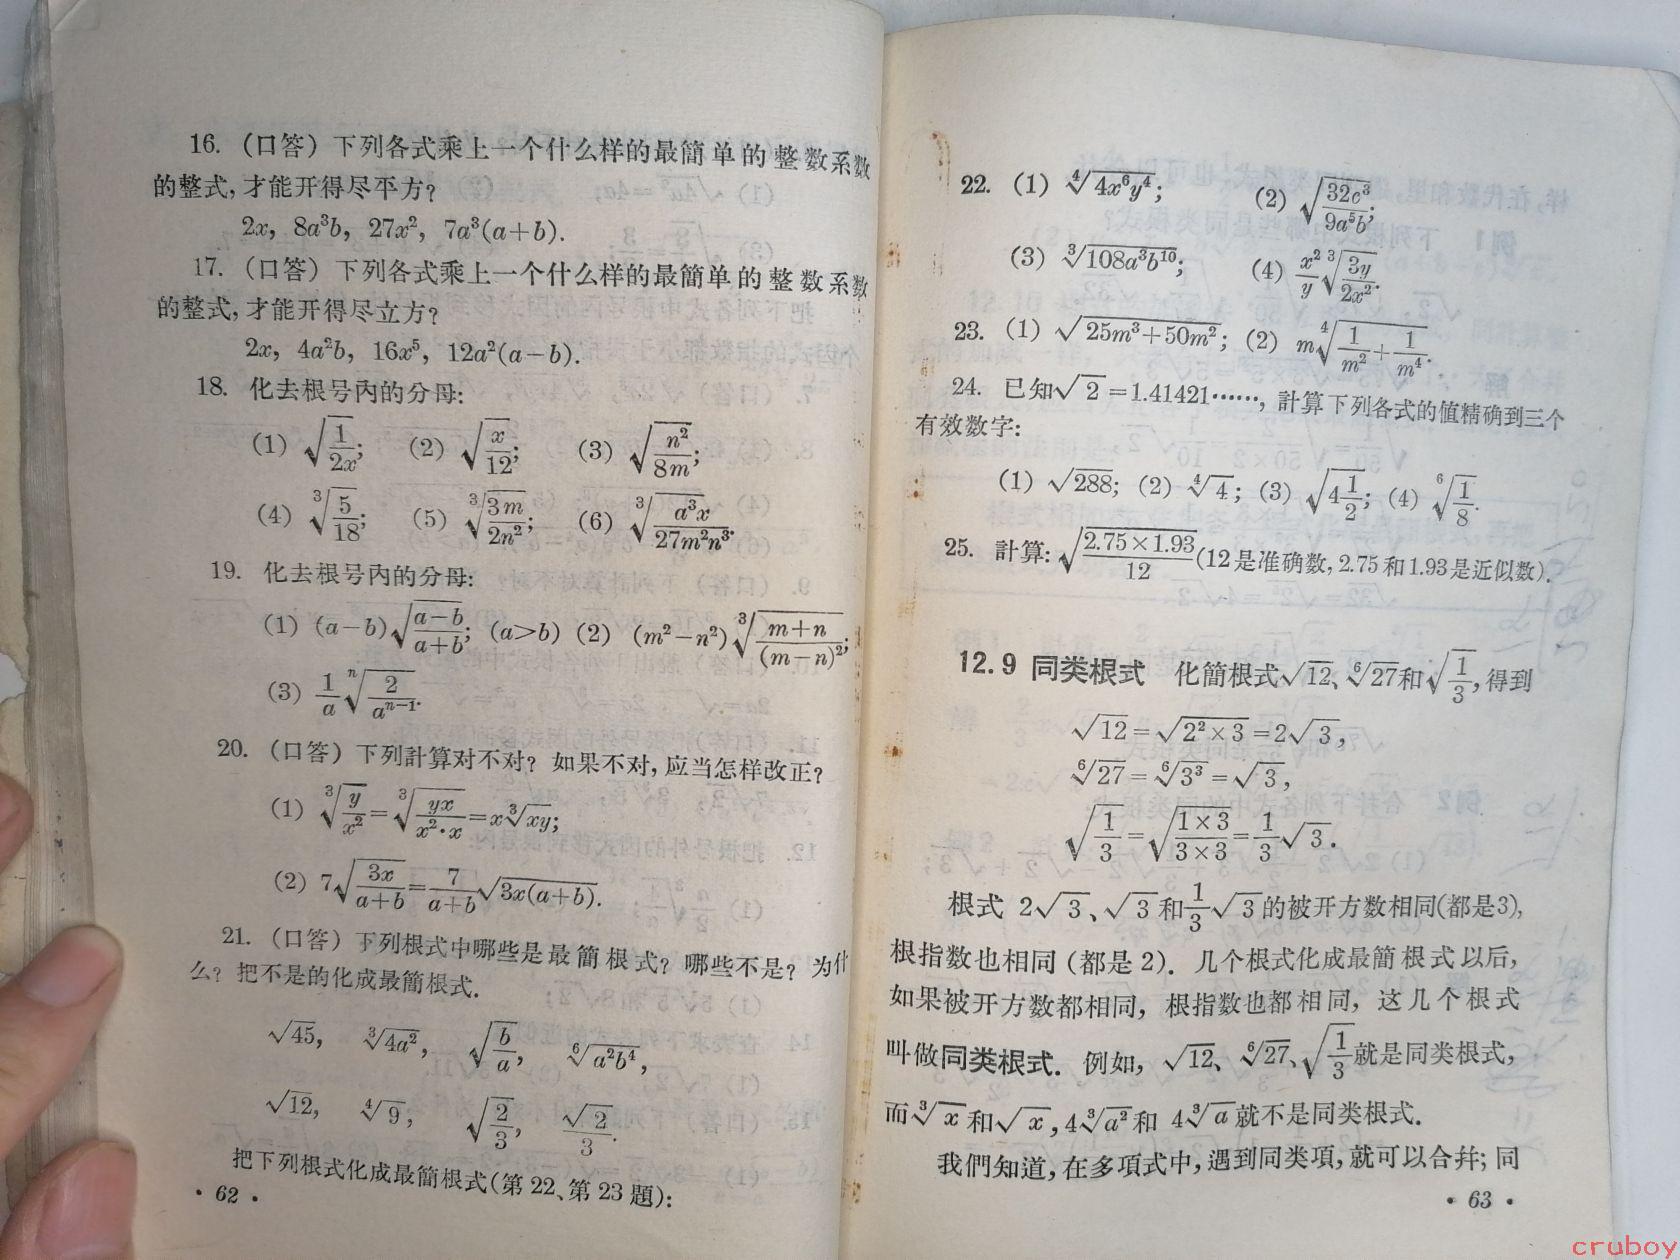 16. (口答) 下列各式乘上一个什么样的最簡单的整数系数
的整式,才能开得尽平方?
2x, 8a³b, 27x², 7a³(a+b).
17. (口答) 下列各式乘上一个什么样的最簡单的整数系数
的整式,才能开得尽立方?
2x, 4a²b, 16x⁵, 12a²(a−b).
18. 化去根号內的分母:
(1) √(1/2x); (2) √(x/12); (3) √(n²/8m);
(4) ³√(5/18); (5) ³√(3m/2n²); (6) ³√(a³x/27m²n³).
19. 化去根号內的分母:
(1) (a−b)√((a−b)/(a+b)); (a>b) (2) (m²−n²) ³√((m+n)/(m−n)²);
(3) 1/a ⁿ√(2/aⁿ⁻¹).
20. (口答) 下列計算对不对? 如果不对,应当怎样改正?
(1) ³√(y/x²)=³√(yx/x²·x)=x³√xy;
(2) 7√(3x/(a+b))=7/(a+b) √3x(a+b).
21. (口答) 下列根式中哪些是最簡根式? 哪些不是? 为什
么? 把不是的化成最簡根式.
√45, ³√4a², √(b/a), ⁶√a²b⁴,
√12, ⁴√9, √(2/3), √2/3.
把下列根式化成最簡根式(第22、第23題):
· 62 ·
22. (1) ⁴√4x⁶y⁴; (2) √(32c³/9a⁵b);
(3) ³√108a³b¹⁰; (4) x²/y ³√(3y/2x²).
23. (1) √25m³+50m²; (2) m ⁴√(1/m²+1/m⁴).
24. 已知√2=1.41421……, 計算下列各式的値精确到三个
有效数字:
(1) √288; (2) ⁴√4; (3) √(4 1/2); (4) ⁶√(1/8).
25. 計算: √(2.75×1.93/12) (12是准确数, 2.75和1.93是近似数).
12.9 同类根式 化簡根式√12、⁶√27和√(1/3), 得到
√12=√2²×3=2√3,
⁶√27=⁶√3³=√3,
√(1/3)=√(1×3/3×3)=1/3 √3.
根式 2√3、√3和1/3 √3的被开方数相同(都是3),
根指数也相同 (都是 2). 几个根式化成最簡根式以后,
如果被开方数都相同, 根指数也都相同, 这几个根式
叫做同类根式. 例如, √12、⁶√27、√(1/3)就是同类根式,
而³√x和√x, 4³√a²和 4³√a就不是同类根式.
我們知道,在多項式中,遇到同类項,就可以合幷; 同
· 63 ·
cruboy